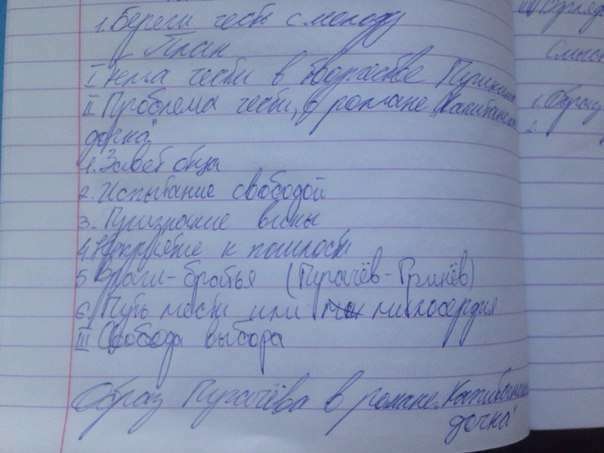 1. Береги честь смолоду
План
I Тема чести в творчестве Пушкина
II Проблема чести в романе "Капитанская
дочка"
1. Завет отца
2. Испытание свободой
3. Признание вины
4. к
5. Враги-братья (Пугачёв-Гринёв)
6. Путь мести или милосердия
III Свобода выбора
Образ Пугачёва в романе "Капитанская
дочка"
Смысл
1. Образ
2.